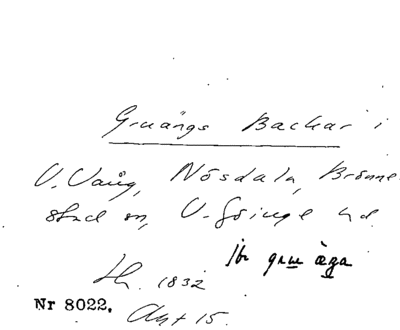 Gruängs Backar i
V. Vång, Nösdala, Brönne
stad sn, V. Göinge hd.
gru äga
1832
Nr 8022. Akt 15.